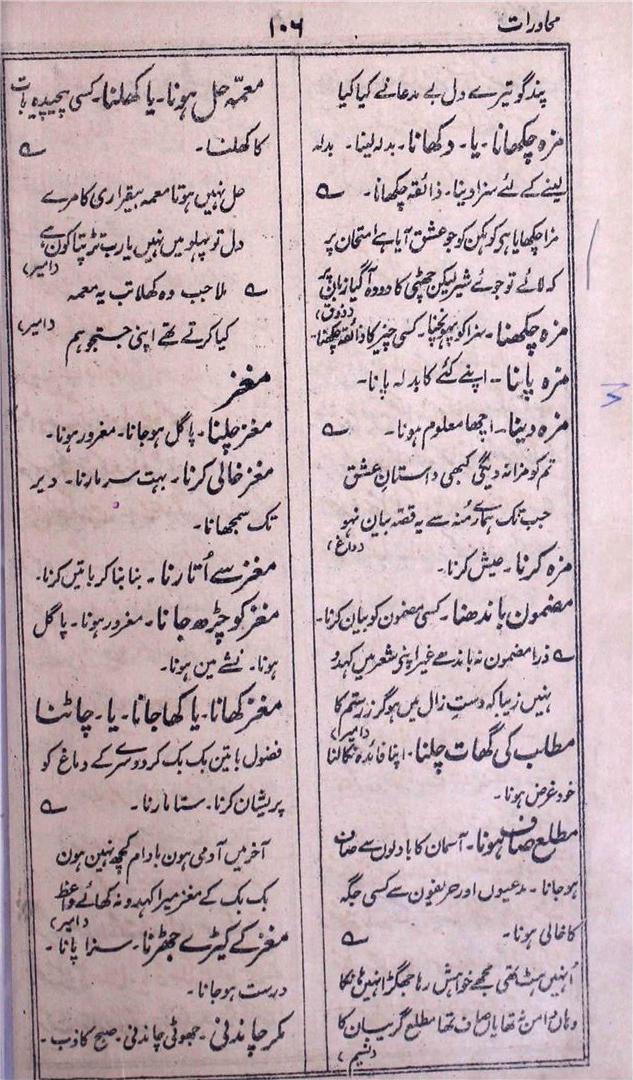 محاورات
۱۰۶
پند گو تیرے دل بے مدعانے کیا کیا
مزہ چکھانا۔ یا۔ دکھانا۔ بدلہ لینا۔ بدلہ
لینے کے لئے سزا دینا۔ ذائقہ چکھانا۔
مزا چکھایا ہو کوہکن کو جو عشق آیا ہے امتحان پر
کہ لائے تو جوئے شیر لیکن چھٹی کا دودہ آگیا زبان پر
(ذوق)
مزہ چکھنا۔ سزا کو پہونچنا۔ کسی چیز کا ذائقہ چکھنا۔
مزہ پانا۔ اپنے کئے کا بدلہ پانا۔
مزہ دینا۔ اچھا معلوم ہونا۔
تم کو مزا نہ دیگی کبھی داستان عشق
جب تک ہمارے منہ سے یہ قصہ بیان نہو
(داغ)
مزہ کرنا۔ عیش کرنا۔
مضمون باندھنا۔ کسی مضمون کو بیان کرنا۔
ذرا مضمون نہ باندھے غیر اپنی شعر میں کہدو
نہیں زیبا کہ دستِ زال میں ہو گرز رستم کا
(امیر)
مطالب کی گھات چلنا۔ اپنا فائدہ نکالنا
خود غرض ہونا۔
مطلع صاف ہونا۔ آسمان کا بادلوں سے صاف
ہو جانا۔ مدعیوں اور حریفون سے کسی جگہ
کا خالی ہونا۔
اُنہیں ہٹ تھی مجھے خواہش رہا جھگڑا انہیں ہاں کا
وہاں دامن نہ تھا یاں صاف تھا مطلع گریبان کا
(نسیم)
معمّہ حل ہونا۔ یا کھلنا۔ کسی پیچیدہ بات
کا کھلنا۔
حل نہیں ہوتا معمہ بیقراری کا مرے
دل تو پہلو میں نہیں یارب تڑپتا کون ہے
(امیر)
ملا جب وہ کھلا تب یہ معمہ
کیا کرتے تھے اپنی جستجو ہم
(امیر)
مغز
مغز چلنا۔ پاگل ہو جانا۔ مغرور ہونا۔
مغز خالی کرنا۔ بہت سر مارنا۔ دیر
تک سمجھانا۔
مغز سے اُتارنا۔ بنا بنا کر باتیں کرنا۔
مغز کو چڑھ جانا۔ مغرور ہونا۔ پاگل
ہونا۔ نشے مین ہونا۔
مغز کھانا۔ یا کھا جانا۔ یا۔ چاٹنا
فضول باتین بک بک کر دوسرے کے دماغ کو
پریشان کرنا۔ ستا مارنا۔
آخر میں آدمی ہون بادام کچھ نہین ہون
بک بک کے مغز میرا کہدو نہ کھائے واعظ
(امیر)
مغز کے کیڑے جھڑنا۔ سزا پانا۔
درست ہو جانا۔
مکر چاندنی۔ جھوٹی چاندنی۔ صبح کاذب۔